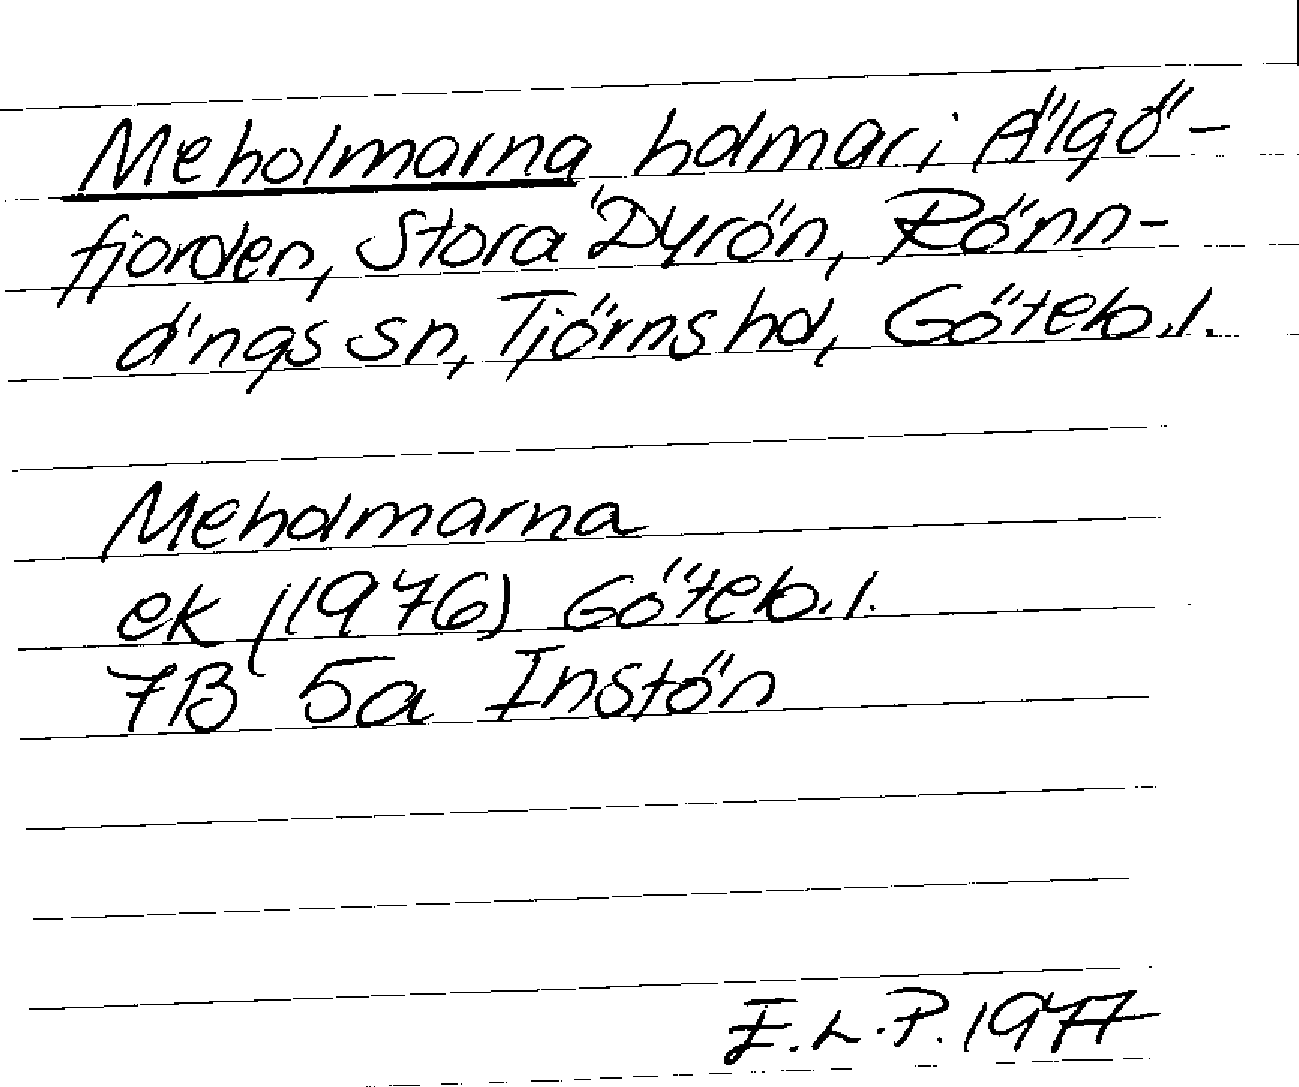 Meholmarna holmar i Älgö-
fjorden, Stora Dyrön, Rönn-
ängs sn, Tjörns hd, Göteb. l.
Meholmarna
ek (1976) Göteb. l.
7B 5a Instön
E. L. P. 1977